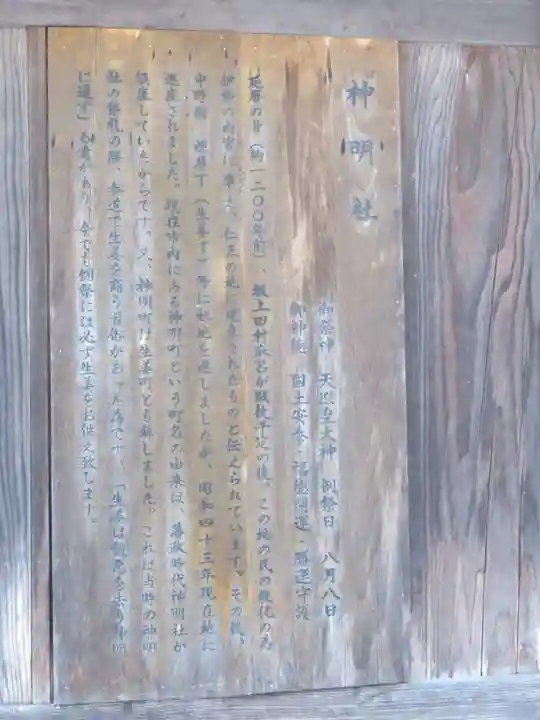 神明社
御祭神 天照皇大神 例祭日 八月八日
御神徳 国土安泰・福徳開運・勝運守護
延暦の昔(約一二〇〇年前)、坂上田村麻呂が蝦夷平定の後、この地の民の教化の為
伊勢の内宮に準じ、仁王の地に勧請されたものと伝えられています。その後、
中野 (生姜丁)等に社地を遷しましたが、昭和四十三年現在地に
遷座されました。現在市内にある神明町という町名の由来は、藩政時代神明社が
鎮座していたからです。又、神明町は生姜町とも称しました。これは当時の神明
社の祭礼の際、参道で生姜を商う習俗があった為です。「生姜は穢悪を去り神明
に通ず」る意があり、今でも例祭には必ず生姜をお供え致します。